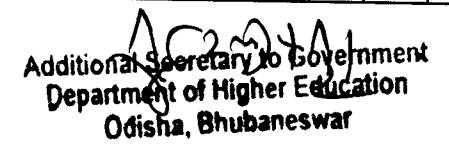 Additional Secretary to Government
Department of Higher Education
Odisha, Bhubaneswar